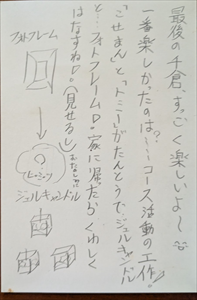 最後の千倉、すっごく楽しいよ〜
一番楽しかったのは?…コース活動の工作!
「ごせまん」と「トミー」がたんとうで、ジェルキャンドル
と…フォトフレームD。家に帰ったらくわしく
はなすねD。(見せるし)
フォトフレーム
ジェルキャンドル